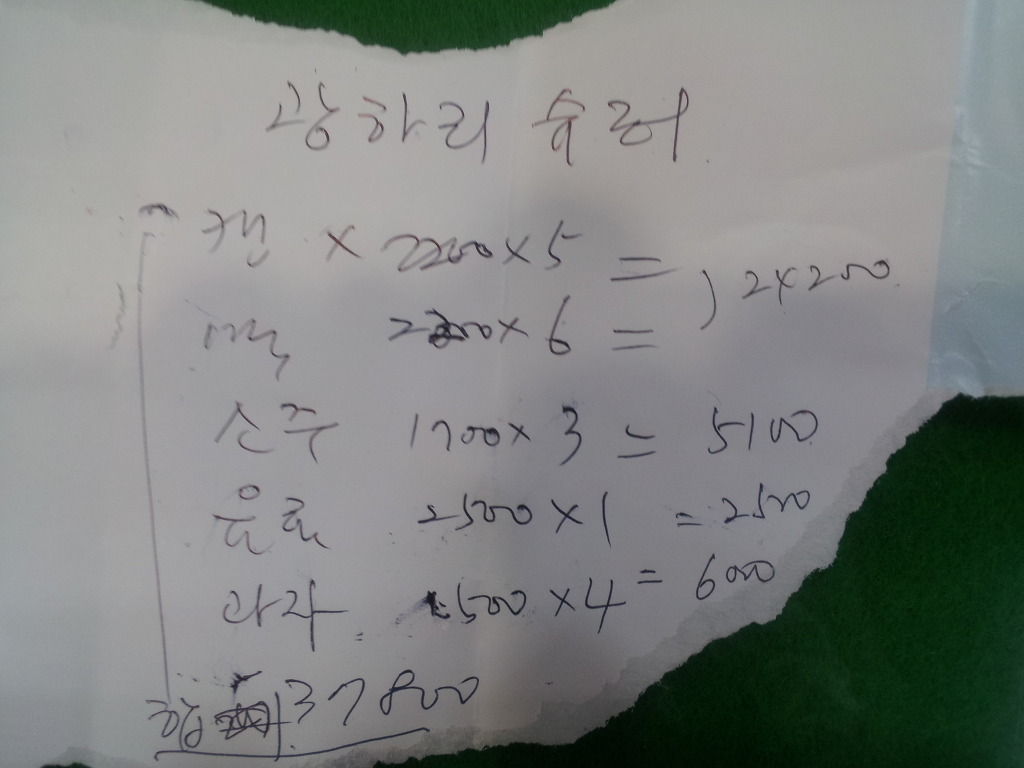 광하리 슈퍼
캔 × 2200×5 = ) 24200
맥 2200×6 =
소주 1700×3 = 5100
음료 2500×1 = 2500
과자 1500×4 = 6000
합 37800